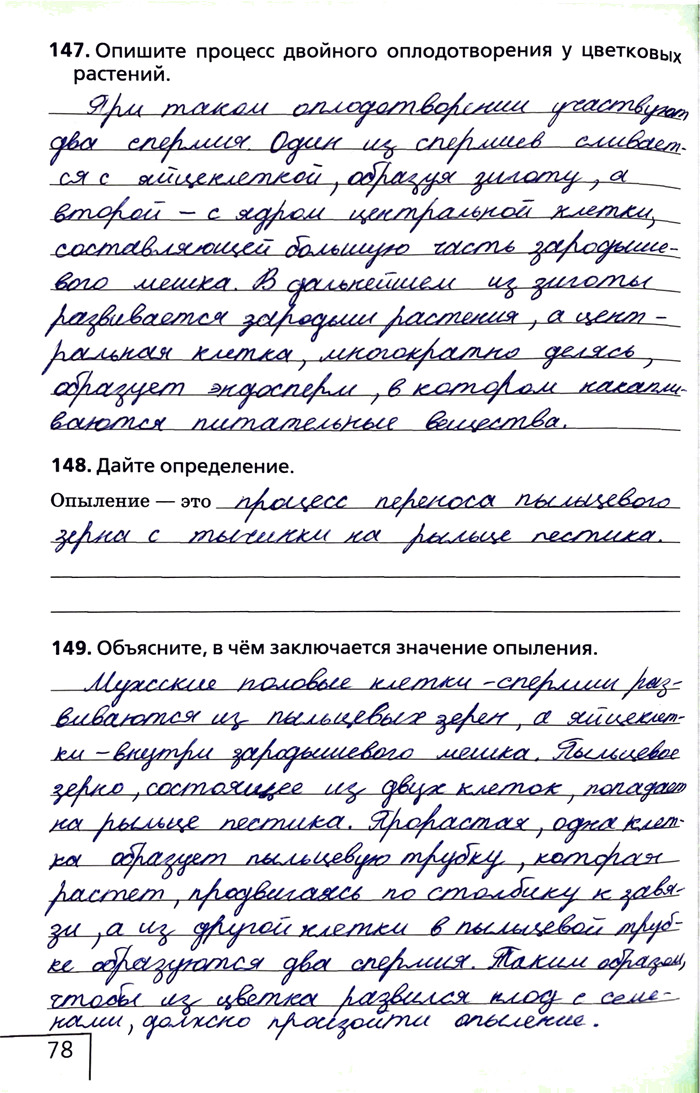 147. Опишите процесс двойного оплодотворения у цветковых
растений.
При таком оплодотворении участвуют
два спермия. Один из спермиев сливает-
ся с яйцеклеткой, образуя зиготу, а
второй – с ядром центральной клетки,
составляющей большую часть зародыше-
вого мешка. В дальнейшем из зиготы
развивается зародыш растения, а цент-
ральная клетка, многократно делясь,
образует эндосперм, в котором накапли-
ваются питательные вещества.
148. Дайте определение.
Опыление — это процесс переноса пыльцевого
зерна с тычинки на рыльце пестика.
149. Объясните, в чём заключается значение опыления.
Мужские половые клетки – спермии раз-
виваются из пыльцевых зерен, а яйцеклет-
ки – внутри зародышевого мешка. Пыльцевое
зерно, состоящее из двух клеток, попадает
на рыльце пестика. Прорастая, одна клет-
ка образует пыльцевую трубку, которая
растет, продвигаясь по столбику к завя-
зи, а из другой клетки в пыльцевой труб-
ке образуются два спермия. Таким образом,
чтобы из цветка развился плод с семе-
нами, должно произойти опыление.
78